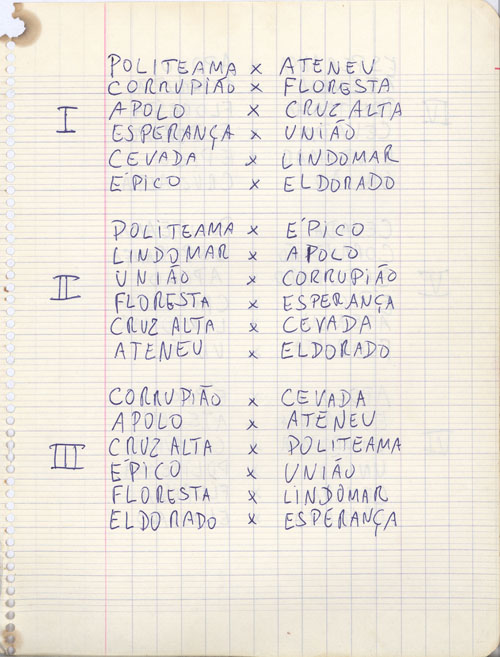 I
POLITEAMA x ATENEU
CORRUPIÃO x FLORESTA
APOLO x CRUZ ALTA
ESPERANÇA x UNIÃO
CEVADA x LINDOMAR
ÉPICO x ELDORADO
II
POLITEAMA x ÉPICO
LINDOMAR x APOLO
UNIÃO x CORRUPIÃO
FLORESTA x ESPERANÇA
CRUZ ALTA x CEVADA
ATENEU x ELDORADO
III
CORRUPIÃO x CEVADA
APOLO x ATENEU
CRUZ ALTA x POLITEAMA
ÉPICO x UNIÃO
FLORESTA x LINDOMAR
ELDORADO x ESPERANÇA